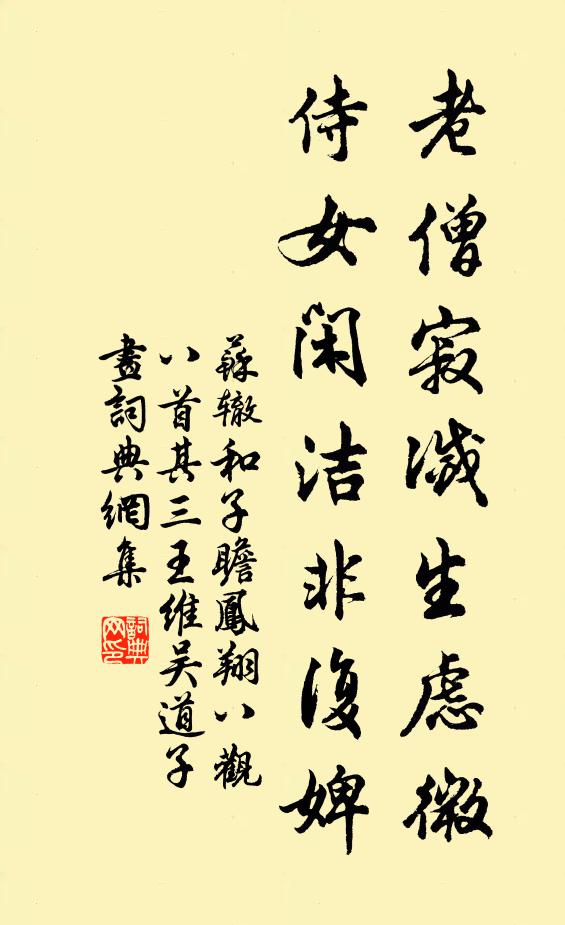 老僧寂滅生慮微
侍女閑洁非復婢
蘇辙和子瞻鳳翔八觀
八首其三王維吴道子
畫詞典網集
詞典
网印